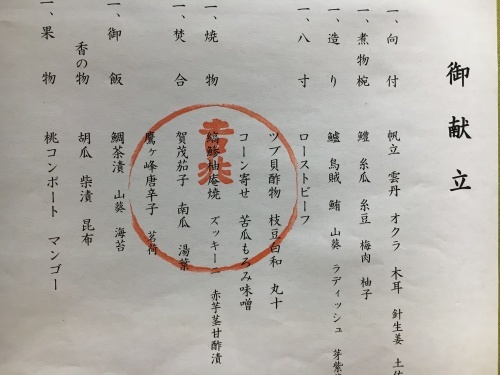 御献立
一、向付 帆立 雲丹 オクラ 木耳 針生姜 土佐
一、煮物椀 鱧 糸瓜 糸豆 梅肉 柚子
一、造り 鱸 烏賊 鮪 山葵 ラディッシュ 芽紫
一、八寸 ローストビーフ
ツブ貝酢物 枝豆白和 丸十
コーン寄せ 苦瓜もろみ味噌
一、焼物 鯵柚庵焼 ズッキーニ 赤芋茎甘酢漬
一、焚合 賀茂茄子 南瓜 湯葉
鷹ヶ峰唐辛子 茗荷
一、御飯 鯛茶漬 山葵 海苔
香の物 胡瓜 柴漬 昆布
一、果物 桃コンポート マンゴー